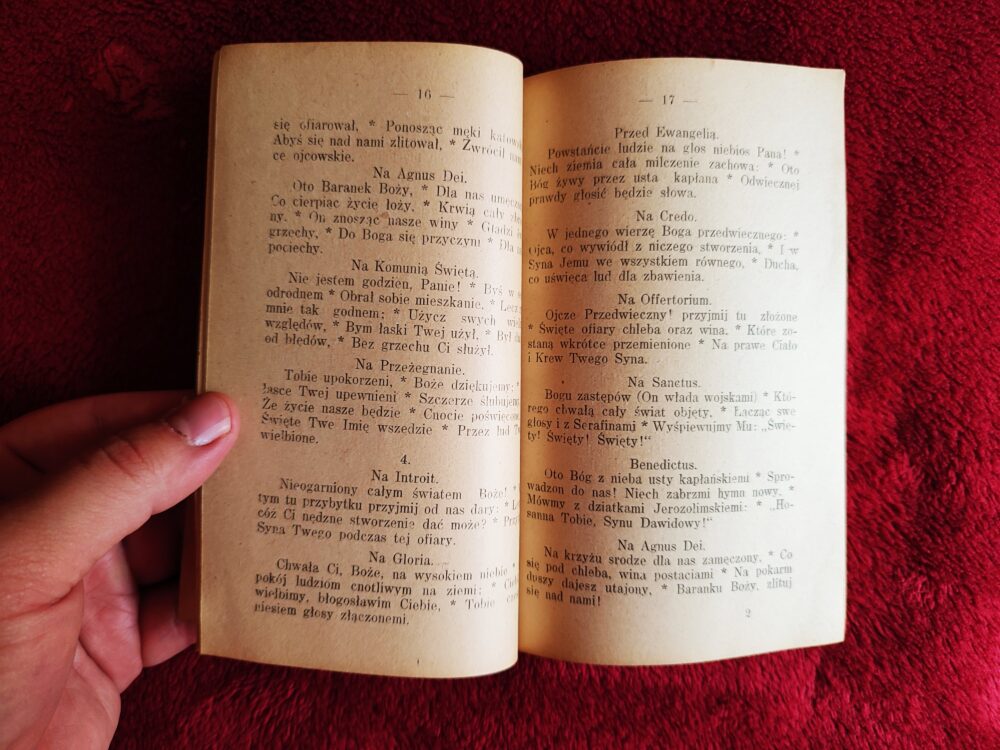 — 16 —
się ofiarował, * Ponosząc męki
Abyś się nad nami zlitował, * Zwrócił
ce ojcowskie.
Na Agnus Dei.
Oto Baranek Boży, * Dla nas
Co cierpiąc życie łoży, * Krwią cały
ny. * On znosząc nasze winy * Gładzi
grzechy, * Do Boga się przyczyni * Dla
pociechy.
Na Komunią Świętą.
Nie jestem godzien, Panie! * Byś w
odrodnem * Obrał sobie mieszkanie. * Lecz
mnie tak godnem; * Użycz swych
względów, * Bym łaski Twej użył, * Był
od błędów, * Bez grzechu Ci służył.
Na Przeżegnanie.
Tobie upokorzeni, * Boże dziękujemy: *
łasce Twej upewnieni * Szczerze ślubujem,
Że życie nasze będzie * Cnocie
Święte Twe Imię wszędzie * Przez lud
wielbione.
4.
Na Introit.
Nieogarniony całym światem Boże! *
tym tu przybytku przyjmij od nas dary:
cóż Ci nędzne stworzenie dać może? *
Syna Twego podczas tej ofiary.
Na Gloria.
Chwała Ci, Boże, na wysokiem niebie *
pokój ludziom cnotliwym na ziemi: *
wielbimy, błogosławim Ciebie, * Tobie
niesiem głosy złączonemi.
— 17 —
Przed Ewangelią.
Powstańcie ludzie na głos niebios Pana! *
Niech ziemia cała milczenie zachowa: * Oto
Bóg żywy przez usta kapłana * Odwiecznej
prawdy głosić będzie słowa.
Na Credo.
W jednego wierzę Boga przedwiecznego: *
Ojca, co wywiódł z niczego stworzenia, * I w
Syna Jemu we wszystkiem równego, * Ducha,
co uświęca lud dla zbawienia.
Na Offertorium.
Ojcze Przedwieczny! przyjmij tu złożone
* Święte ofiary chleba oraz wina. * Które zo-
staną wkrótce przemienione * Na prawe Ciało
i Krew Twego Syna.
Na Sanctus.
Bogu zastępów (On włada wojskami) * Któ-
rego chwałą cały świat objęty. * Łącząc swe
głosy i z Serafinami * Wyśpiewujmy Mu: „Świę-
ty! Święty! Święty!“
Benedictus.
Oto Bóg z nieba usty kapłańskiemi * Spro-
wadzon do nas! Niech zabrzmi hymn nowy. *
Mówmy z dziatkami Jerozolimskiemi: * „Ho-
sanna Tobie, Synu Dawidowy!“
Na Agnus Dei.
Na krzyżu srodze dla nas zamęczony, * Co
się pod chleba, wina postaciami * Na pokarm
duszy dajesz utajony, * Baranku Boży, zlituj
się nad nami!
2